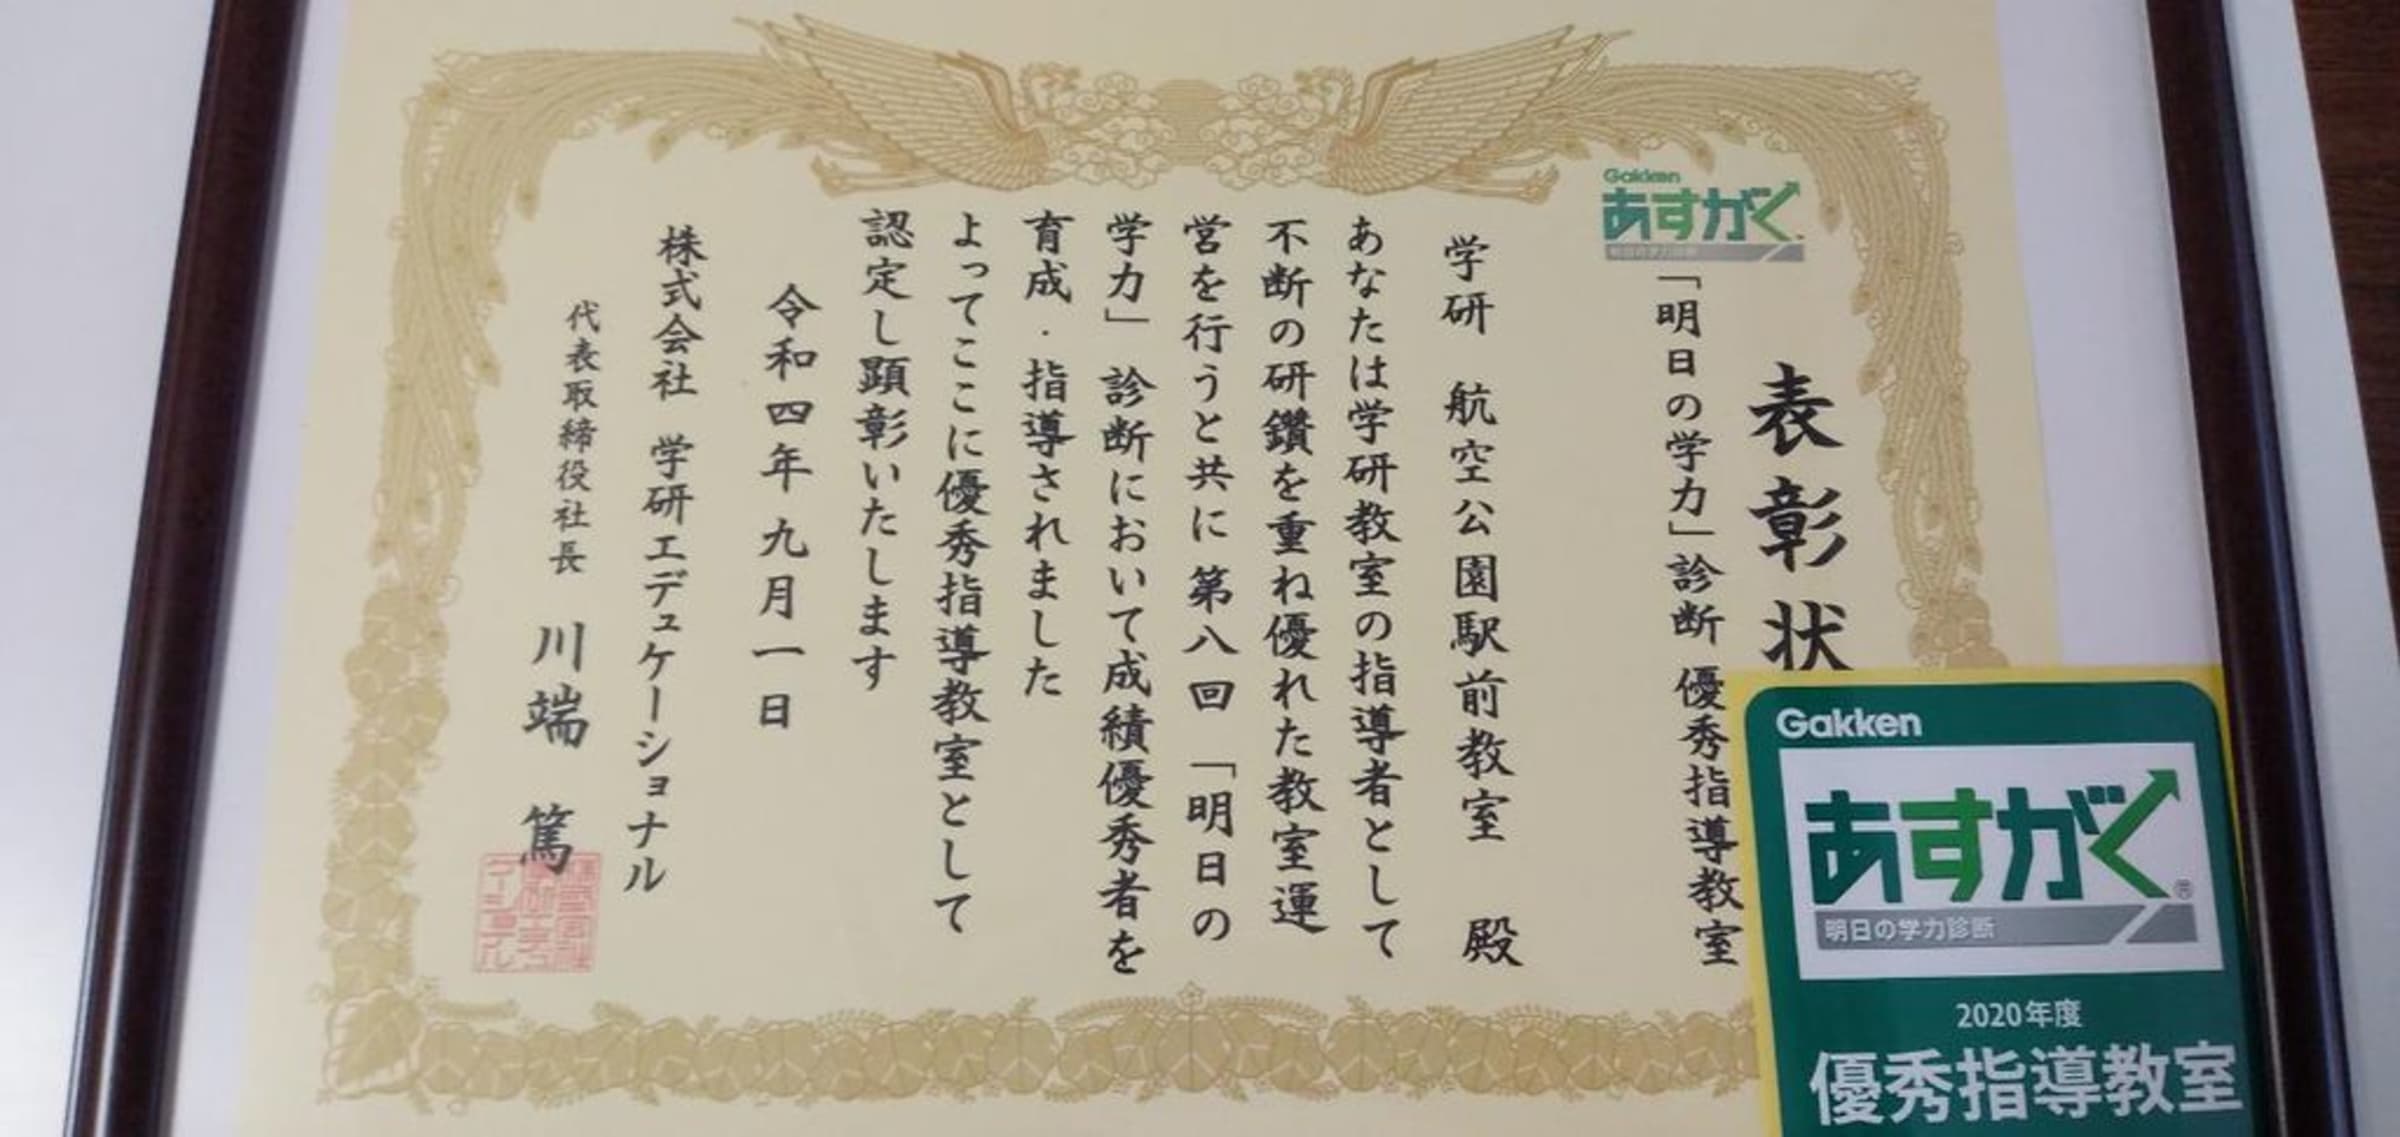 表彰状
Gakken
あすがく
明日の学力診断
「明日の学力」診断 優秀指導教室
学研 航空公園駅前教室 殿
あなたは学研教室の指導者として
不断の研鑽を重ね優れた教室運
営を行うと共に 第八回 「明日の
学力」 診断において成績優秀者を
育成・指導されました
よってここに優秀指導教室として
認定し顕彰いたします
令和四年九月一日
株式会社 学研エデュケーショナル
代表取締役社長 川端 篤
Gakken
あすがく®
明日の学力診断
2020年度
優秀指導教室